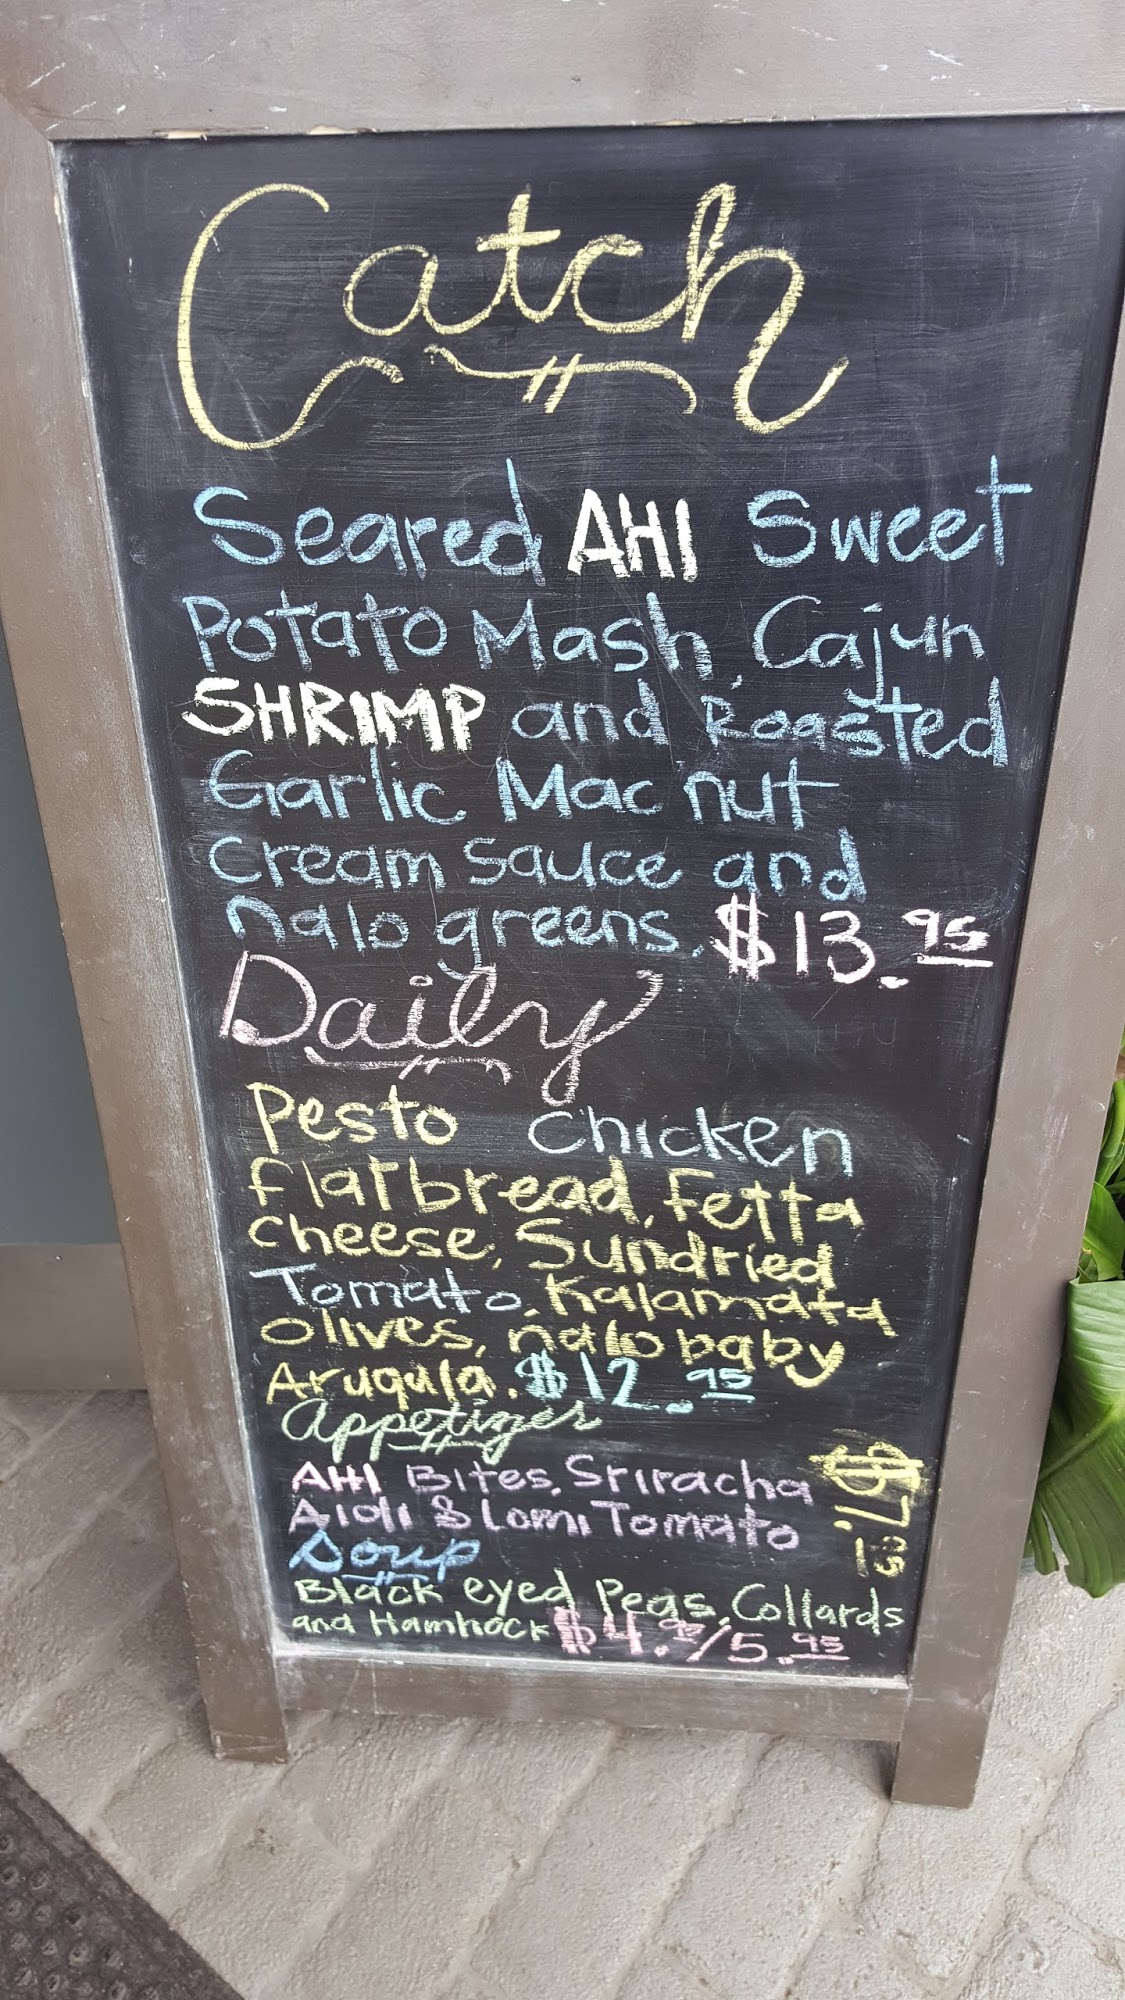 Catch
Seared AHI Sweet
Potato Mash, Cajun
SHRIMP and Roasted
Garlic Mac nut
Cream sauce and
nalo greens. $13.95
Daily
Pesto Chicken
Flatbread, Fetta
Cheese, Sundried
Tomato, Kalamata
Olives, nalo baby
Arugula. $12.95
Appetizer
AHI Bites, Sriracha
Aioli & Lomi Tomato
$7.95
Soup
Black eyed Peas, Collards
and Hamhock $4.95/5.95